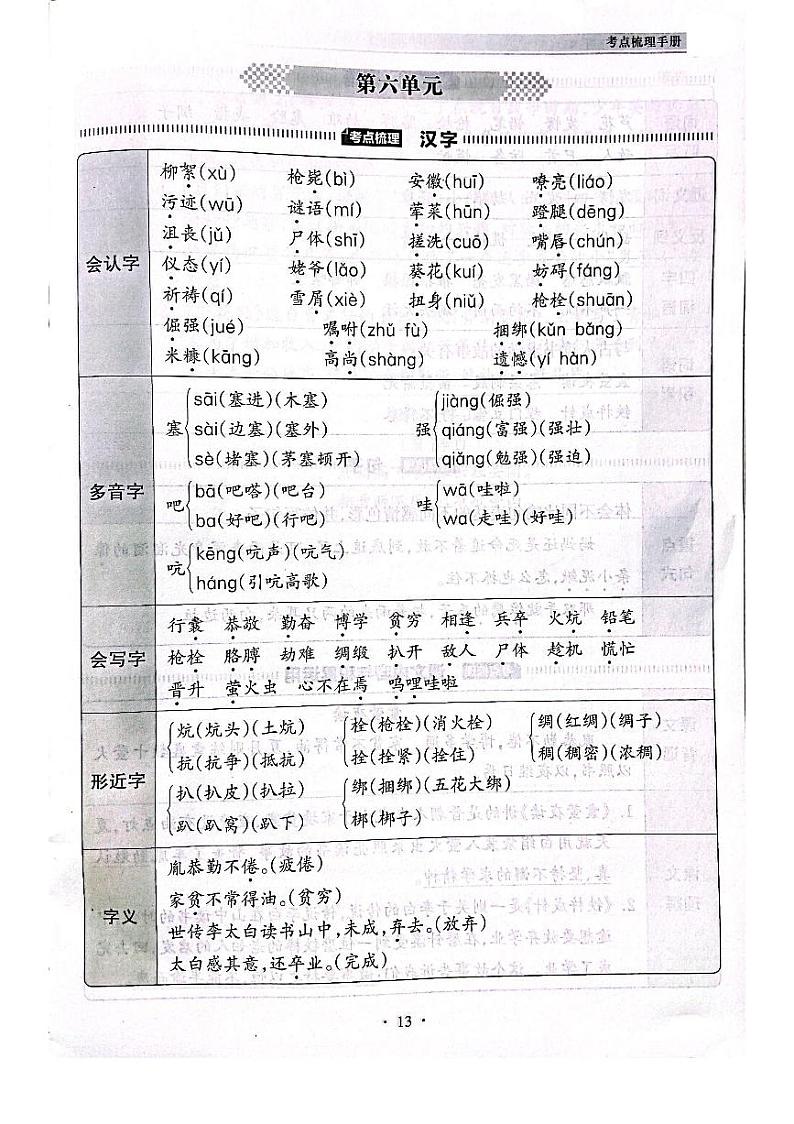 考点梳理手册
第六单元
考点梳理 汉字
会认字
柳絮(xù) 枪毙(bì) 安徽(huī) 嘹亮(liáo)
污迹(wū) 谜语(mí) 荤菜(hūn) 蹬腿(dēng)
沮丧(jǔ) 尸体(shī) 搓洗(cuō) 嘴唇(chún)
仪态(yí) 姥爷(lǎo) 葵花(kuí) 妨碍(fáng)
祈祷(qí) 雪屑(xiè) 扭身(niǔ) 枪栓(shuān)
倔强(jué) 嘱咐(zhǔ fù) 捆绑(kǔn bǎng)
米糠(kāng) 高尚(shàng) 遗憾(yí hàn)
多音字
塞 sāi(塞进)(木塞)
sài(边塞)(塞外)
sè(堵塞)(茅塞顿开)
强 jiàng(倔强)
qiáng(富强)(强壮)
qiǎng(勉强)(强迫)
吧 bā(吧嗒)(吧台)
ba(好吧)(行吧)
哇 wā(哇啦)
wa(走哇)(好哇)
吭 kēng(吭声)(吭气)
háng(引吭高歌)
会写字
行囊 恭敬 勤奋 博学 贫穷 相逢 兵卒 火炕 铅笔
枪栓 胳膊 劫难 绸缎 扒开 敌人 尸体 趁机 慌忙
晋升 萤火虫 心不在焉 呜哩哇啦
形近字
炕(炕头)(土炕)
抗(抗争)(抵抗)
栓(枪栓)(消火栓)
拴(拴紧)(拴住)
绸(红绸)(绸子)
稠(稠密)(浓稠)
扒(扒皮)(扒拉)
趴(趴窝)(趴下)
绑(捆绑)(五花大绑)
梆(梆子)
字义
胤恭勤不倦。(疲倦)
家贫不常得油。(贫穷)
世传李太白读书山中,未成,弃去。(放弃)
太白感其意,还卒业。(完成)
· 13 ·